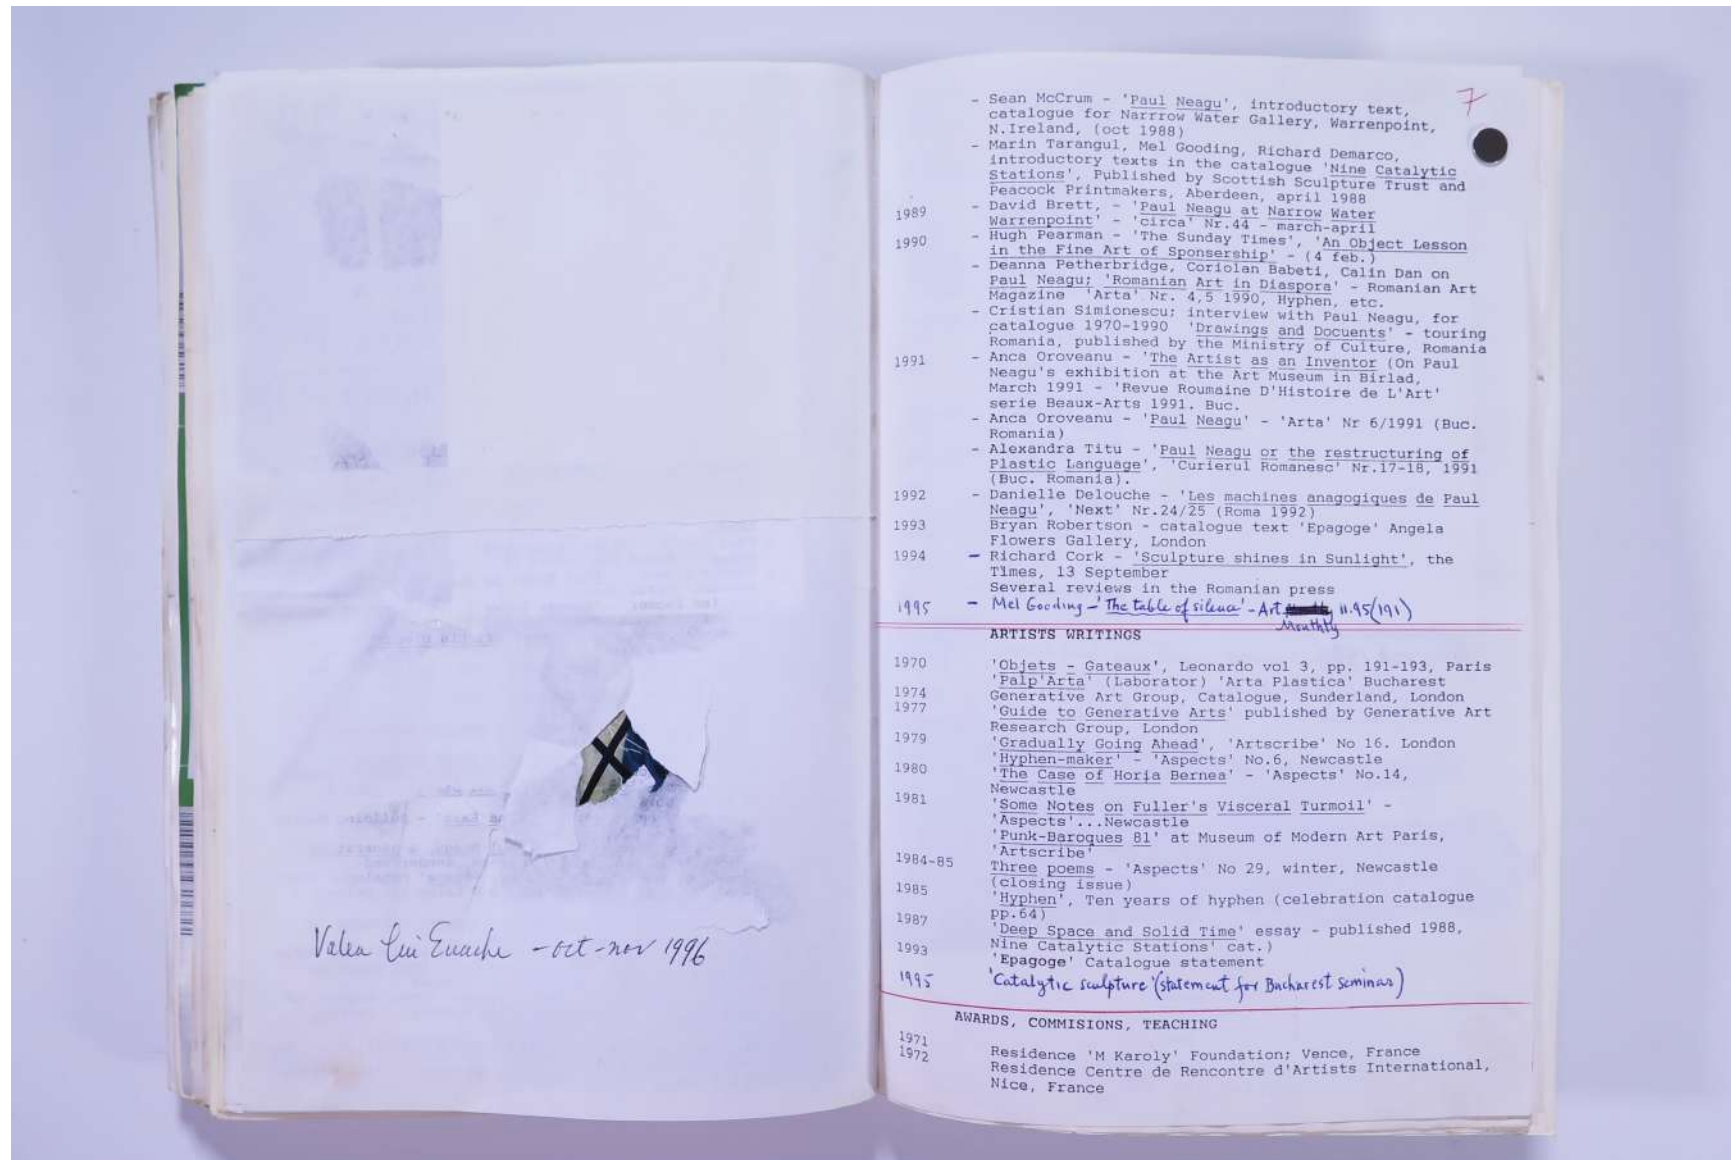 Valea lui Enache - oct-nov 1996
7
- Sean McCrum - 'Paul Neagu', introductory text,
catalogue for Narrrow Water Gallery, Warrenpoint,
N.Ireland, (oct 1988)
- Marin Tarangul, Mel Gooding, Richard Demarco,
introductory texts in the catalogue 'Nine Catalytic
Stations', Published by Scottish Sculpture Trust and
Peacock Printmakers, Aberdeen, april 1988
1989 - David Brett, - 'Paul Neagu at Narrow Water
Warrenpoint' - 'circa' Nr.44 - march-april
1990 - Hugh Pearman - 'The Sunday Times', 'An Object Lesson
in the Fine Art of Sponsership' - (4 feb.)
- Deanna Petherbridge, Coriolan Babeti, Calin Dan on
Paul Neagu; 'Romanian Art in Diaspora' - Romanian Art
Magazine 'Arta' Nr. 4,5 1990, Hyphen, etc.
- Cristian Simionescu; interview with Paul Neagu, for
catalogue 1970-1990 'Drawings and Docuents' - touring
Romania, published by the Ministry of Culture, Romania
1991 - Anca Oroveanu - 'The Artist as an Inventor (On Paul
Neagu's exhibition at the Art Museum in Birlad,
March 1991 - 'Revue Roumaine D'Histoire de L'Art'
serie Beaux-Arts 1991. Buc.
- Anca Oroveanu - 'Paul Neagu' - 'Arta' Nr 6/1991 (Buc.
Romania)
- Alexandra Titu - 'Paul Neagu or the restructuring of
Plastic Language', 'Curierul Romanesc' Nr.17-18, 1991
(Buc. Romania).
1992 - Danielle Delouche - 'Les machines anagogiques de Paul
Neagu', 'Next' Nr.24/25 (Roma 1992)
1993 Bryan Robertson - catalogue text 'Epagoge' Angela
Flowers Gallery, London
1994 - Richard Cork - 'Sculpture shines in Sunlight', the
Times, 13 September
Several reviews in the Romanian press
1995 - Mel Gooding - 'The table of silence' - Art Monthly 11.95(191)
ARTISTS WRITINGS
1970 'Objets - Gateaux', Leonardo vol 3, pp. 191-193, Paris
'Palp'Arta' (Laborator) 'Arta Plastica' Bucharest
1974 Generative Art Group, Catalogue, Sunderland, London
1977 'Guide to Generative Arts' published by Generative Art
Research Group, London
1979 'Gradually Going Ahead', 'Artscribe' No 16. London
'Hyphen-maker' - 'Aspects' No.6, Newcastle
1980 'The Case of Horia Bernea' - 'Aspects' No.14,
Newcastle
1981 'Some Notes on Fuller's Visceral Turmoil' -
'Aspects'...Newcastle
'Punk-Baroques 81' at Museum of Modern Art Paris,
'Artscribe'
1984-85 Three poems - 'Aspects' No 29, winter, Newcastle
(closing issue)
1985 'Hyphen', Ten years of hyphen (celebration catalogue
pp.64)
1987 'Deep Space and Solid Time' essay - published 1988,
Nine Catalytic Stations' cat.)
1993 'Epagoge' Catalogue statement
1995 'Catalytic sculpture' (statement for Bucharest seminar)
AWARDS, COMMISIONS, TEACHING
1971
1972 Residence 'M Karoly' Foundation; Vence, France
Residence Centre de Rencontre d'Artists International,
Nice, France